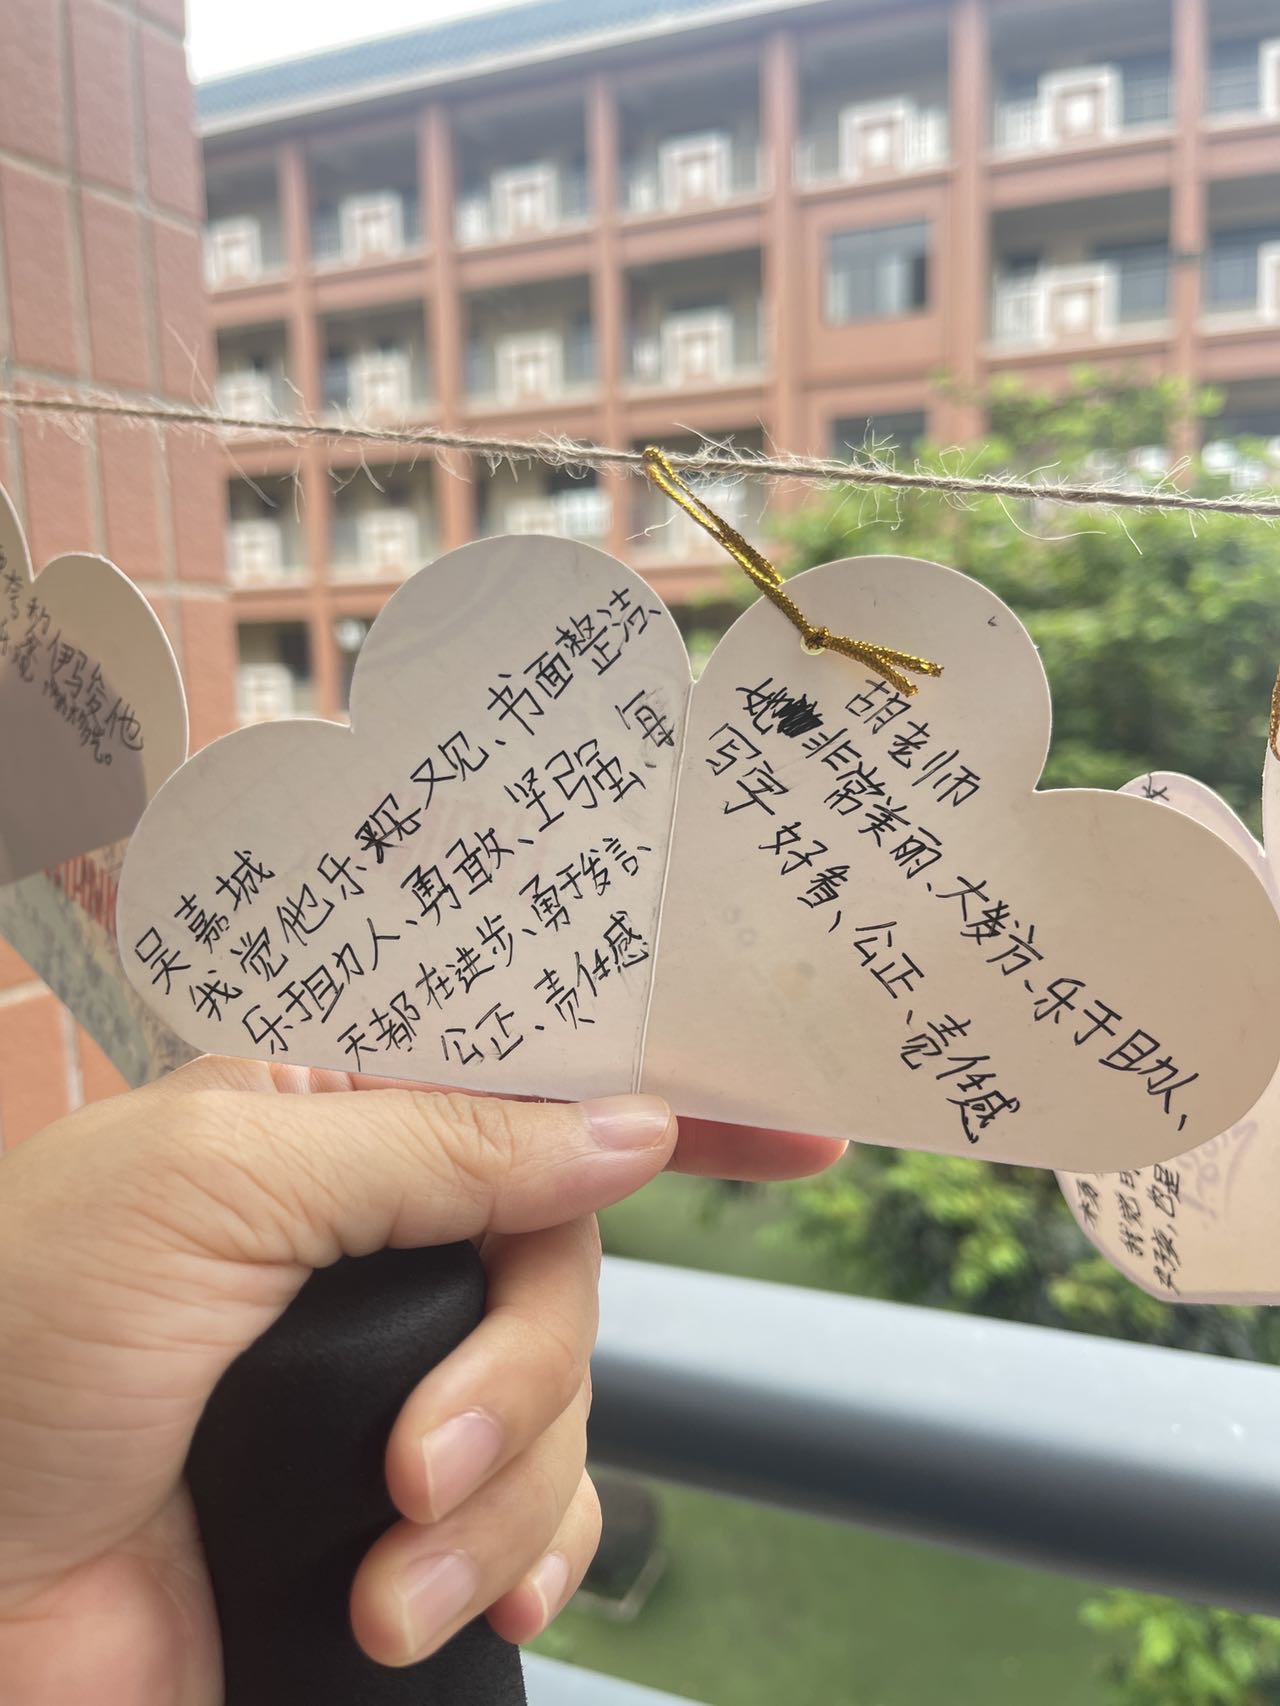 吴嘉城
我觉他乐观又见、书面整洁、
乐于助人、勇敢、坚强、每
天都在进步、勇于发言、
公正、责任感
胡老师
她非常美丽、大方、乐于助人、
写字好看、公正、责任感
他
杨
我觉